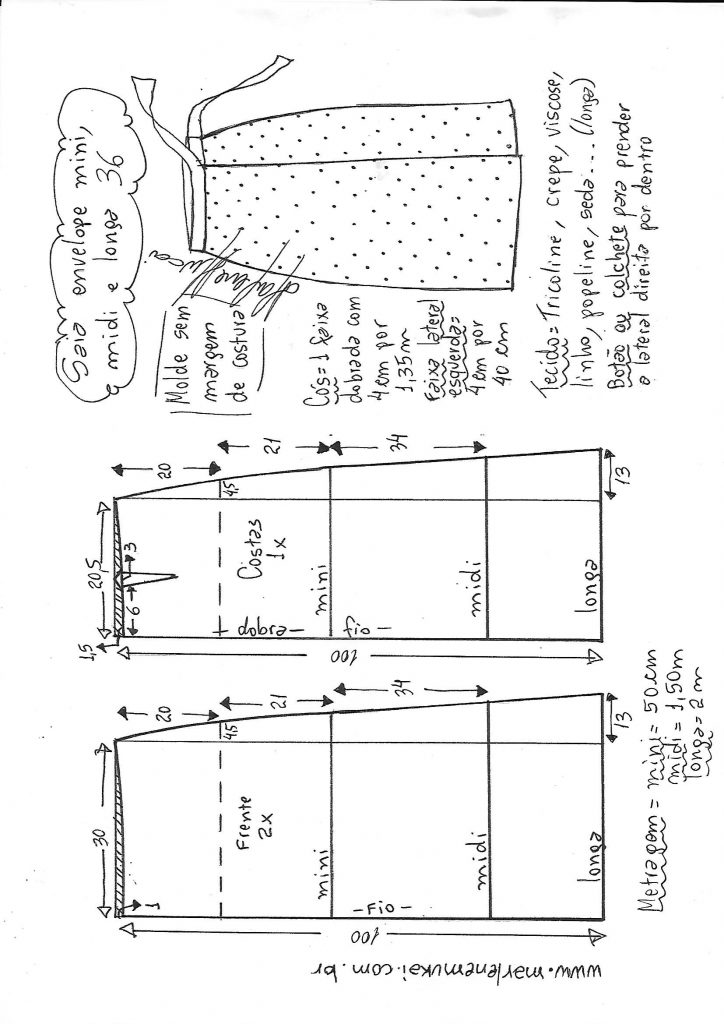 Saia envelope mini,
e midi e longa 36
Molde sem
margem
de costura
Cós=1 faixa
dobrada com
4cm por
1,35m
Faixa lateral
esquerda=
4cm por
40 cm
Tecido=Tricoline, crepe, viscose,
linho, popeline, seda... (longa)
Botão ou colchete para prender
a lateral direita por dentro
20
21
34
20,5
1,5
6
3
4,5
Costas
1x
mini
midi
longa
dobra
fio
100
13
20
21
34
30
1
4,5
Frente
2x
mini
midi
longa
-Fio-
100
13
Metragem= mini= 50cm
midi= 1,50m
longa= 2m
www.marlenemukai.com.br